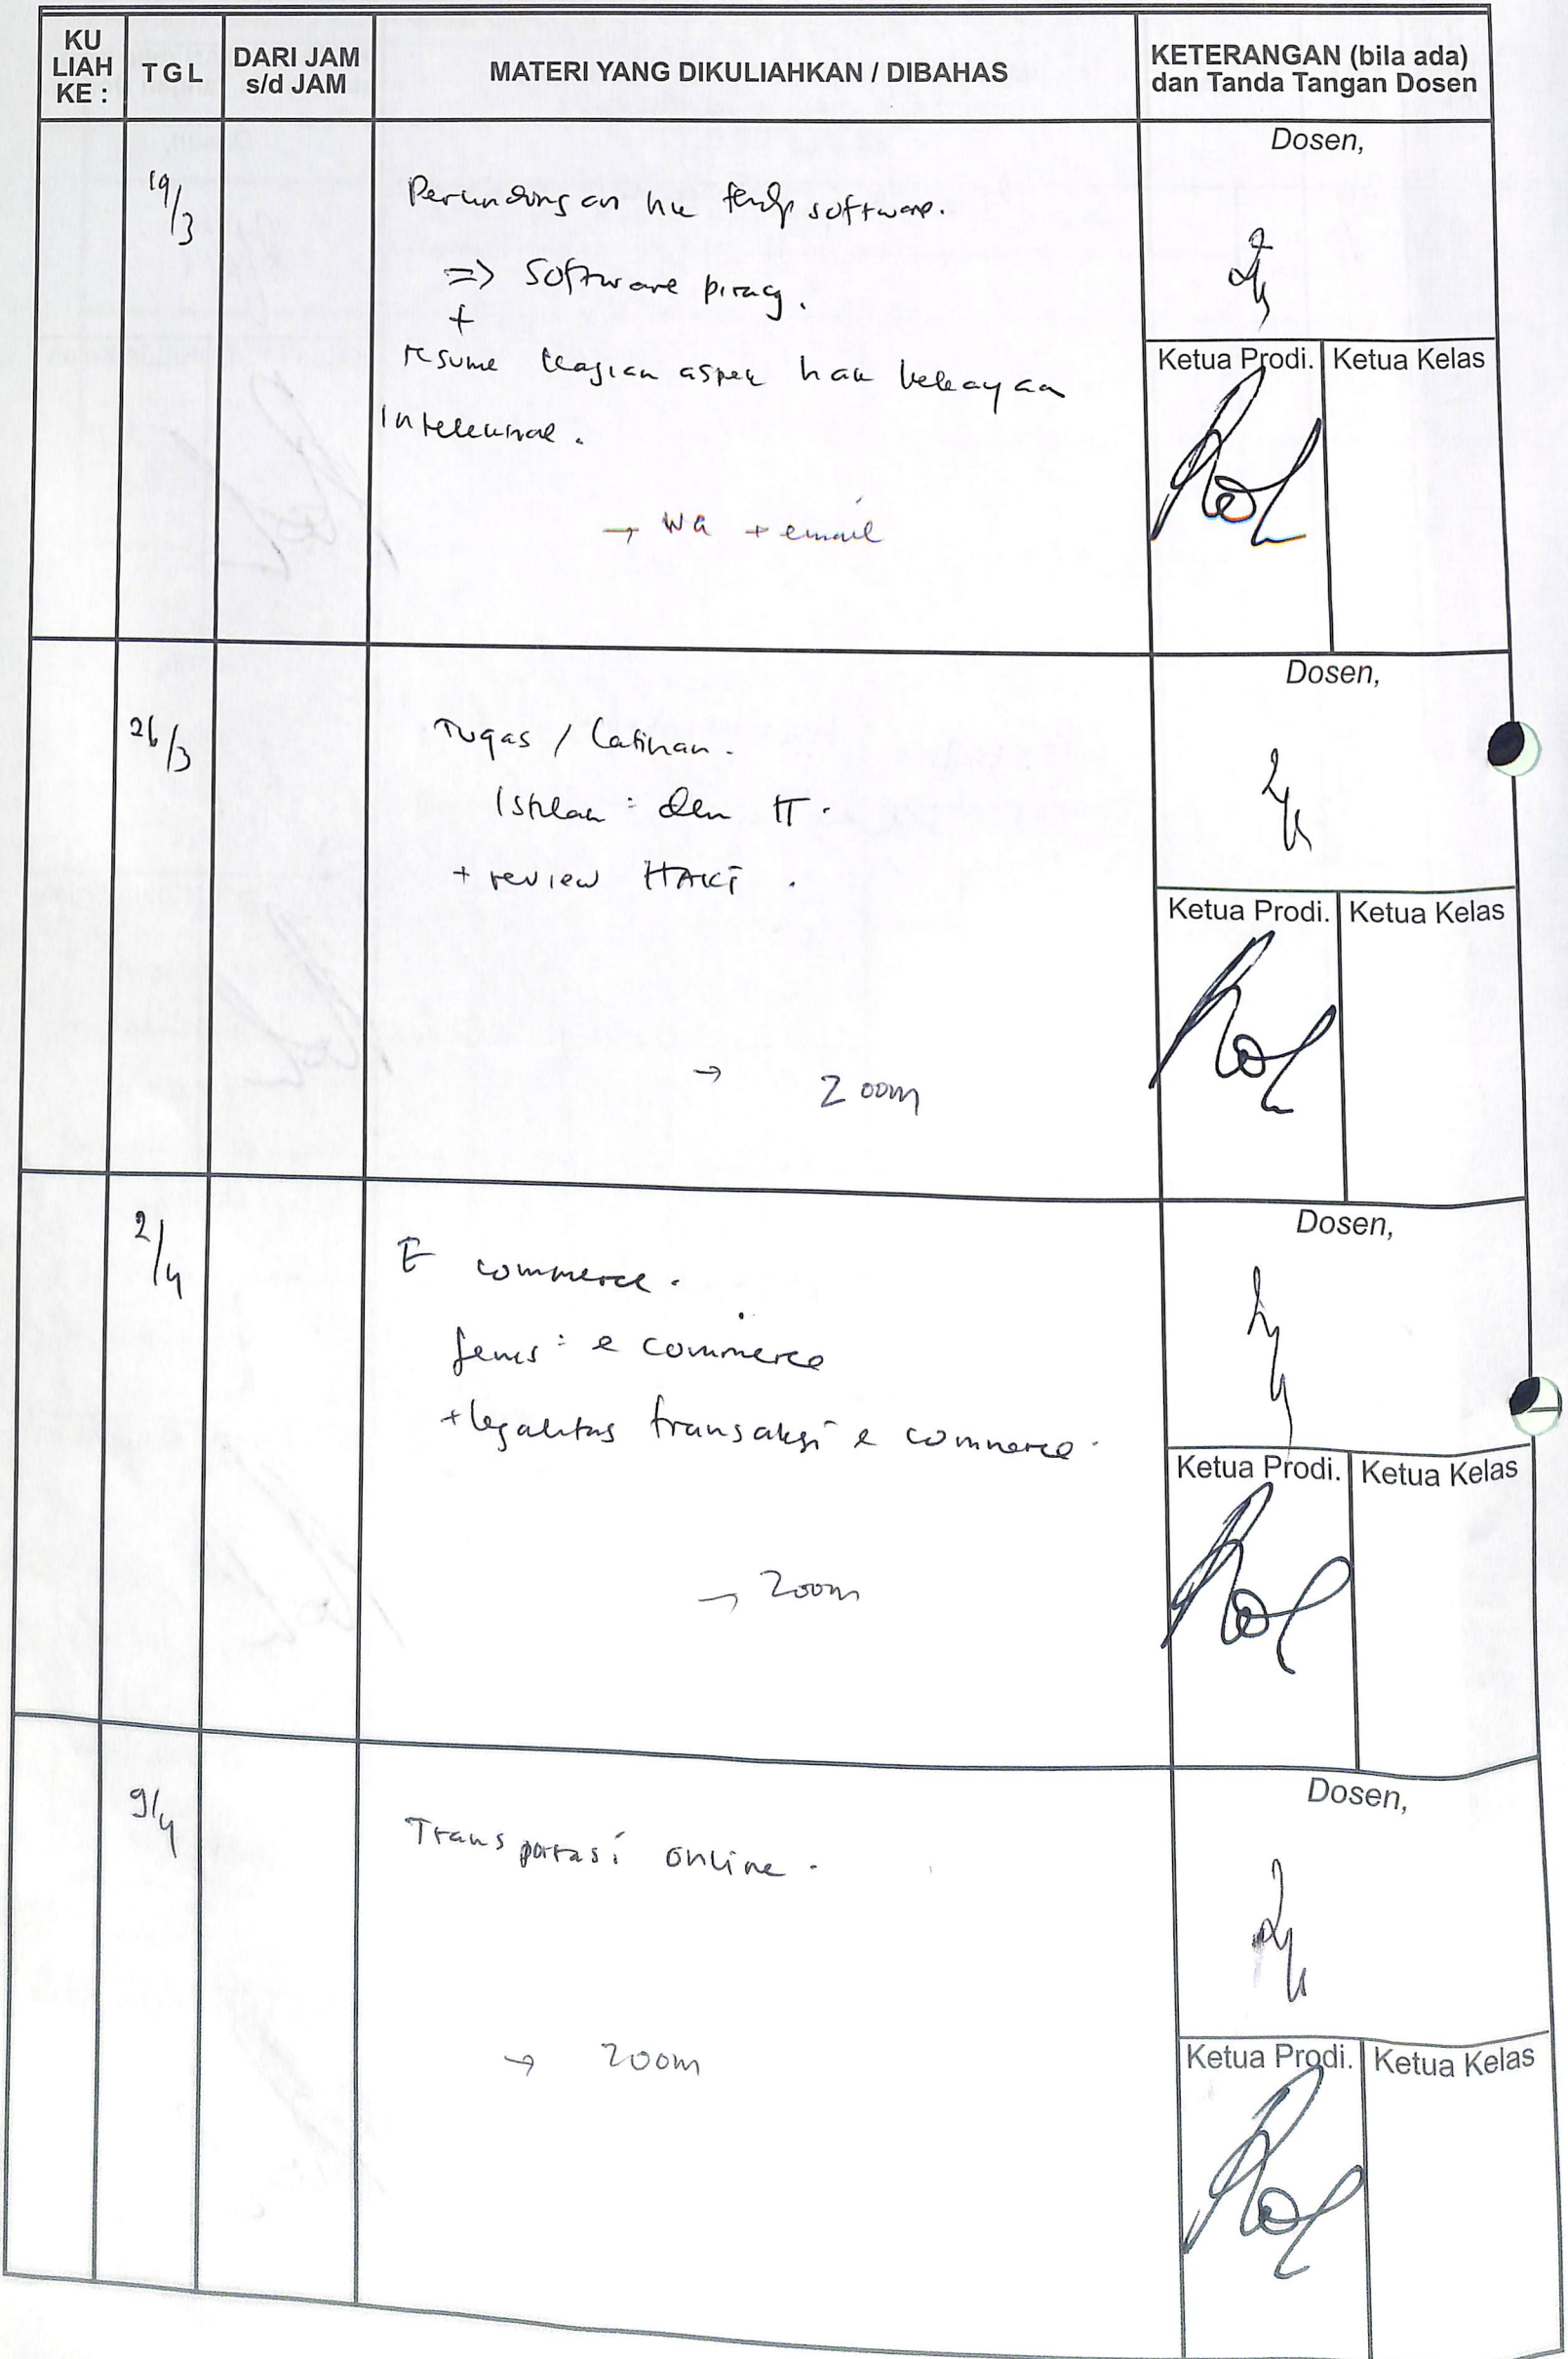 KU LIAH KE :
TGL
DARI JAM s/d JAM
MATERI YANG DIKULIAHKAN / DIBAHAS
KETERANGAN (bila ada) dan Tanda Tangan Dosen
19/3
software.
=> Software piracy.
+
resume kajian aspek hak kekayaan
Intelektual.
→ WA + email
Dosen,
Ketua Prodi.
Ketua Kelas
26/3
Tugas / Latihan.
Istilah : dlm IT.
+ review HAKI.
→ Zoom
Dosen,
Ketua Prodi.
Ketua Kelas
2/4
E commerce.
Jenis : e commerce
+ legalitas transaksi e commerce.
→ Zoom
Dosen,
Ketua Prodi.
Ketua Kelas
9/4
Transportasi online.
→ Zoom
Dosen,
Ketua Prodi.
Ketua Kelas